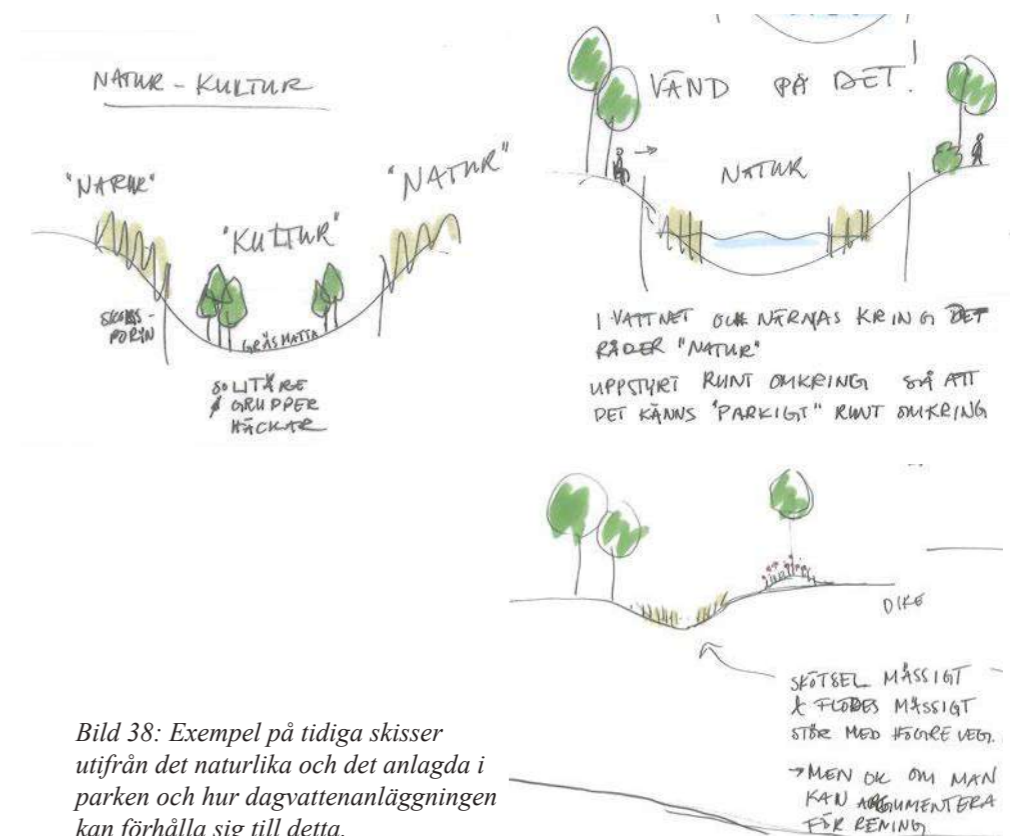 NATUR - KULTUR
"NATUR"
"KULTUR"
"NATUR"
GRÄSMATTA
SOLITÄRE
GRUPPER
HÄCKAR
VÄND PÅ DET!
NATUR
I VATTNET OCH NÄRMAS KRING DET
RÅDER "NATUR"
UPPSTYRT RUNT OMKRING SÅ ATT
DET KÄNNS "PARKIGT" RUNT OMKRING
DIKE
SKÖTSEL MÄSSIGT
& FLÖDES MÄSSIGT
STÖR MED HÖGRE VEG.
→ MEN OK OM MAN
KAN ARGUMENTERA
FÖR RENING
Bild 38: Exempel på tidiga skisser
utifrån det naturlika och det anlagda i
parken och hur dagvattenanläggningen
kan förhålla sig till detta.